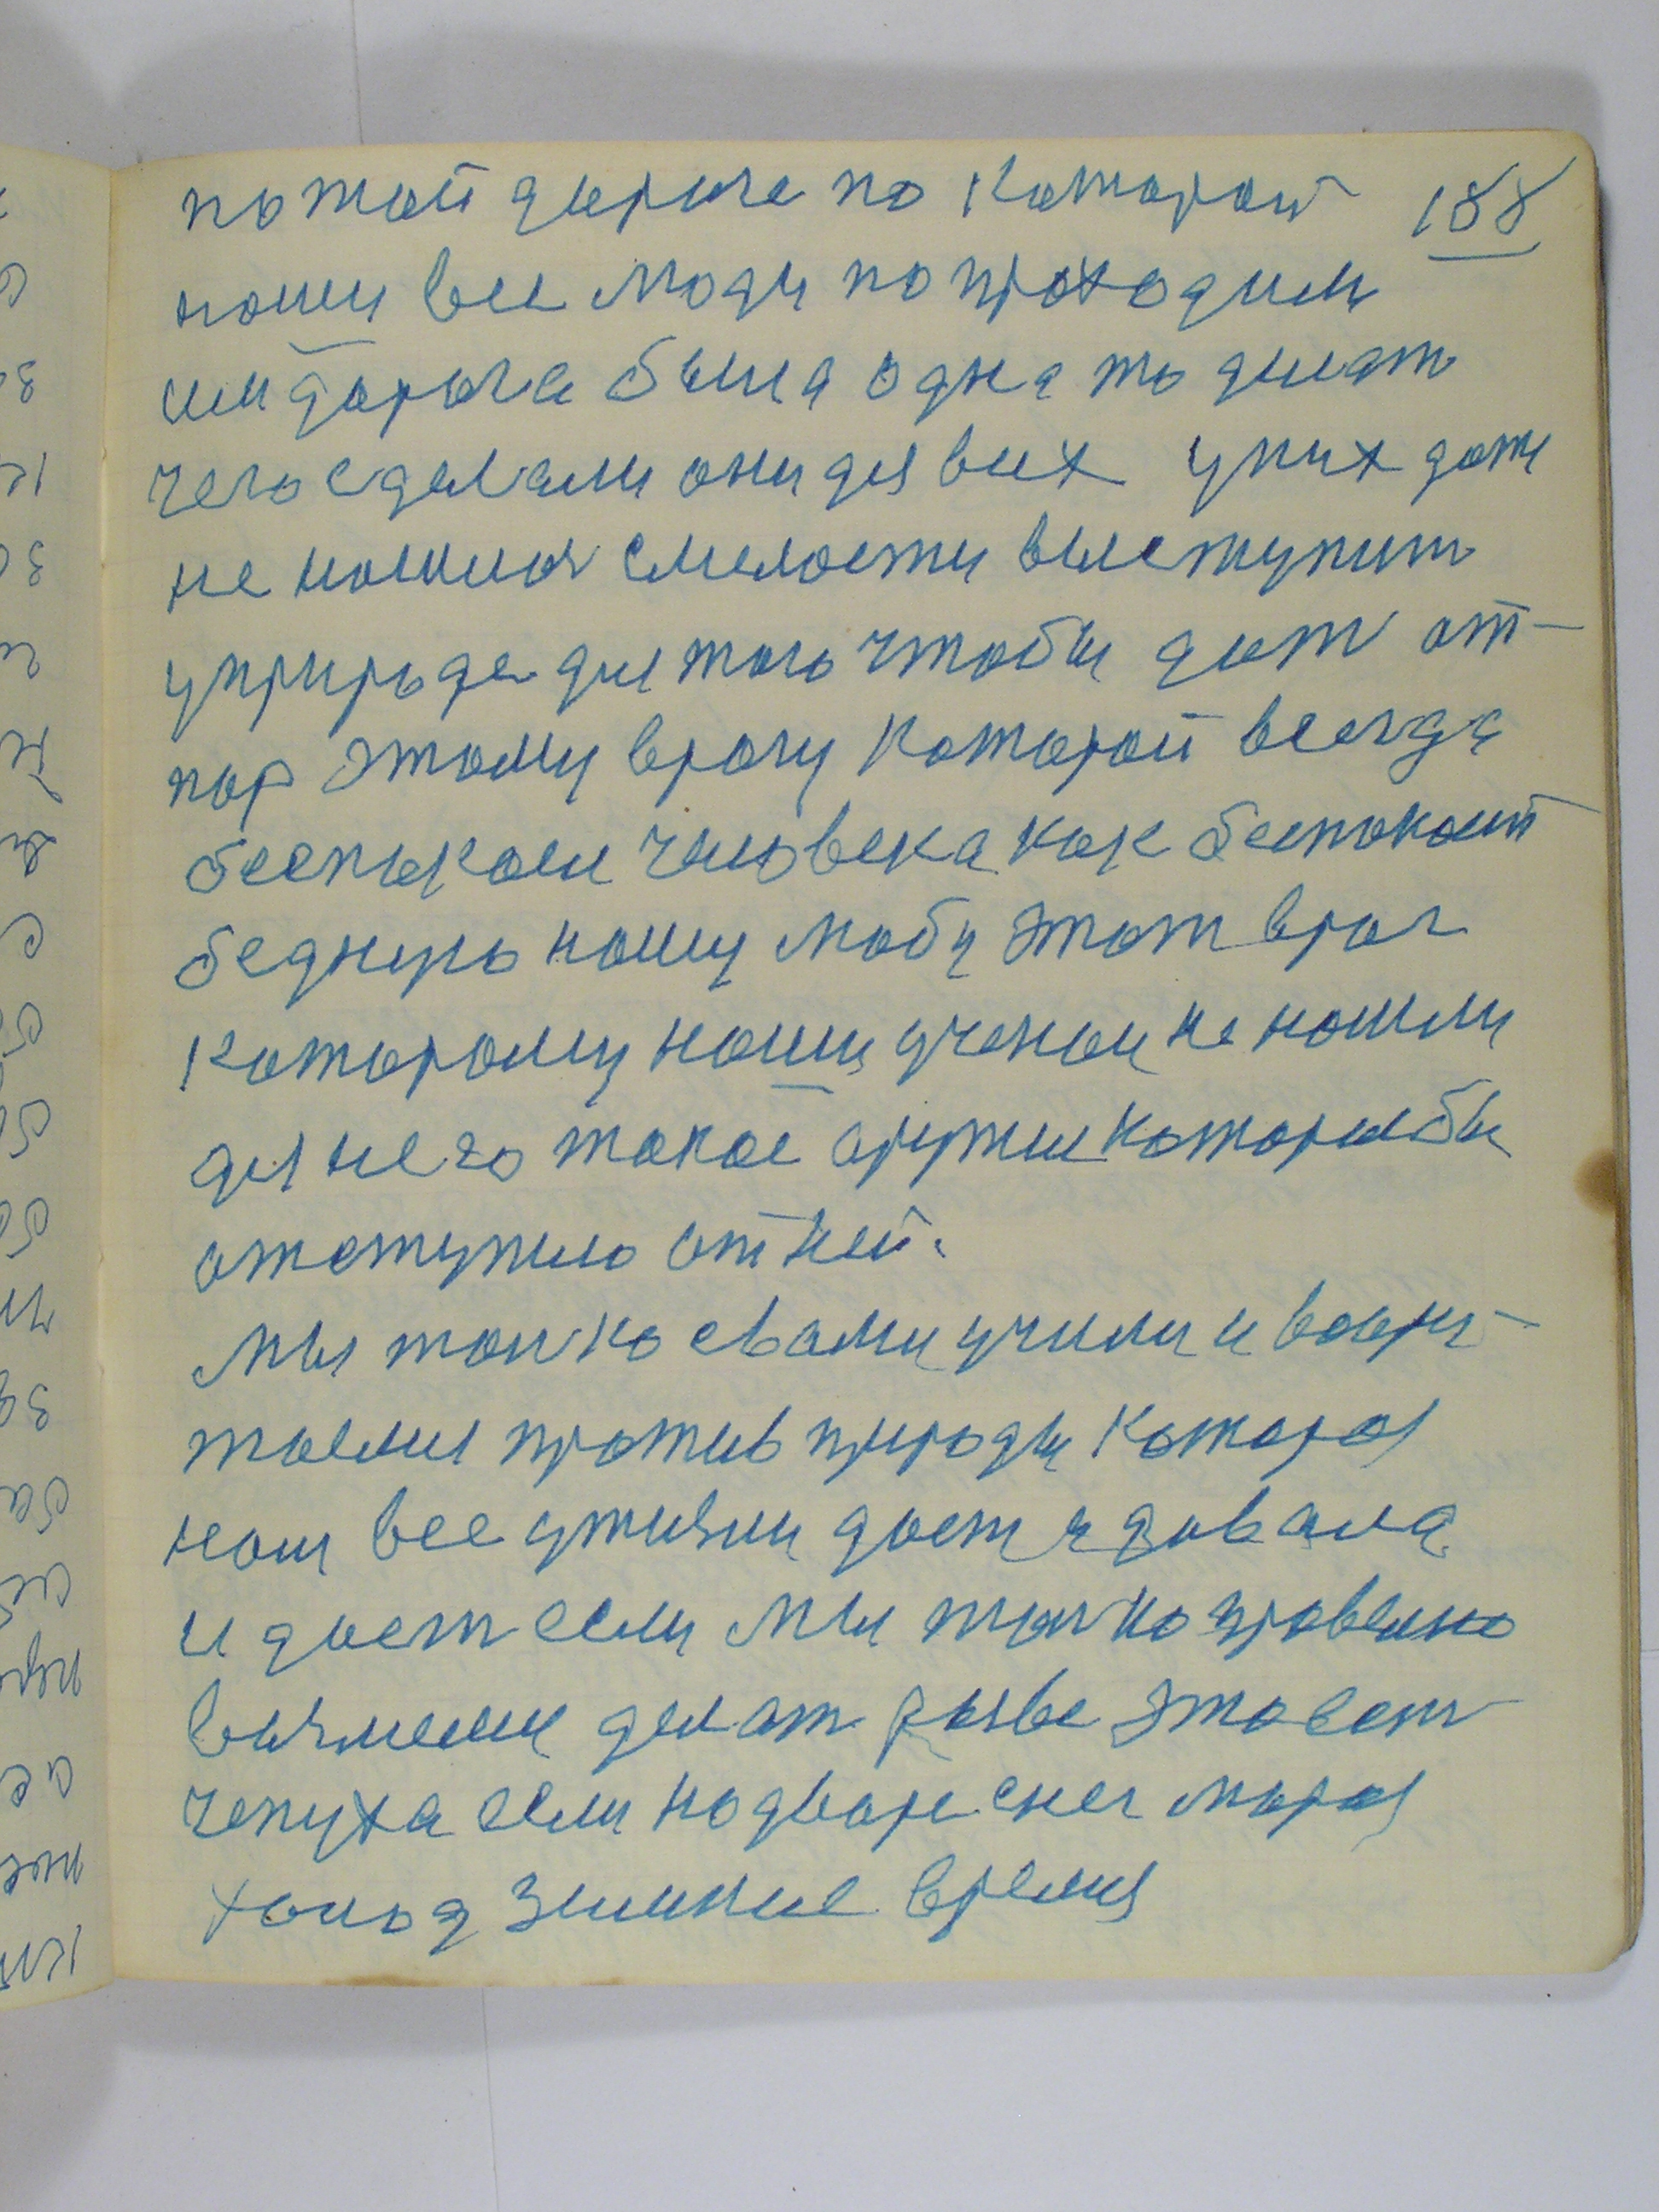 по той дороге по которой 188
наши все люди попроходили
им дорога была одна то делат
чего сделали они для всех у них даже
не нашлос смелости выступит
у природе для того чтобы дат от-
пор этому врагу которой всегда
беспокоил человека как беспокоит
бедную нашу любу этот враг
которому наши ученаи не нашли
для него такое оружие котораябы
отступило от ней.
мы толко свами учили и воспи-
талис против природы которая
нам все ужизни дает и давала
и дает если мы толко правелно
возмемся делат разве это ест
чепуха если надворе снег мороз
холод зимние время